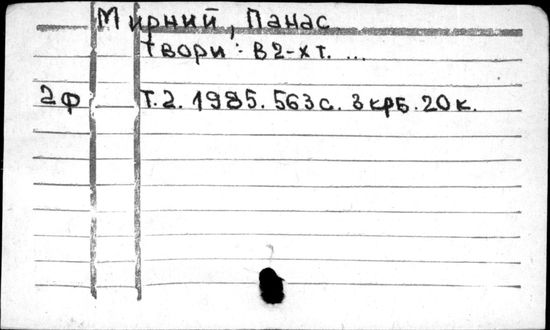 Мирний, Панас
Твори: В 2-х т. ...
2ф Т.2. 1985. 563 с. 3 крб. 20 к.